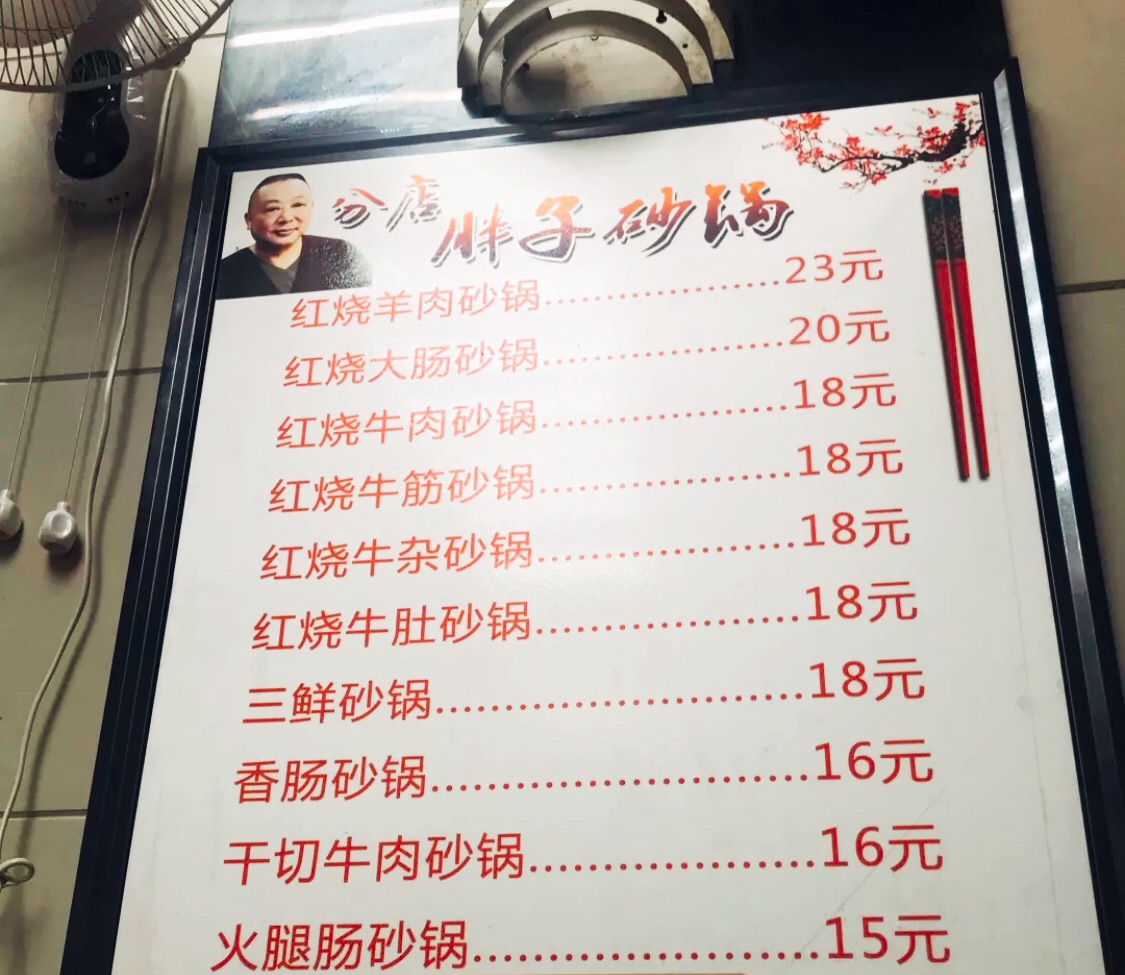 分店
胖子砂锅
红烧羊肉砂锅......................23元
红烧大肠砂锅......................20元
红烧牛肉砂锅......................18元
红烧牛筋砂锅......................18元
红烧牛杂砂锅......................18元
红烧牛肚砂锅......................18元
三鲜砂锅..............................18元
香肠砂锅..............................16元
干切牛肉砂锅......................16元
火腿肠砂锅..........................15元